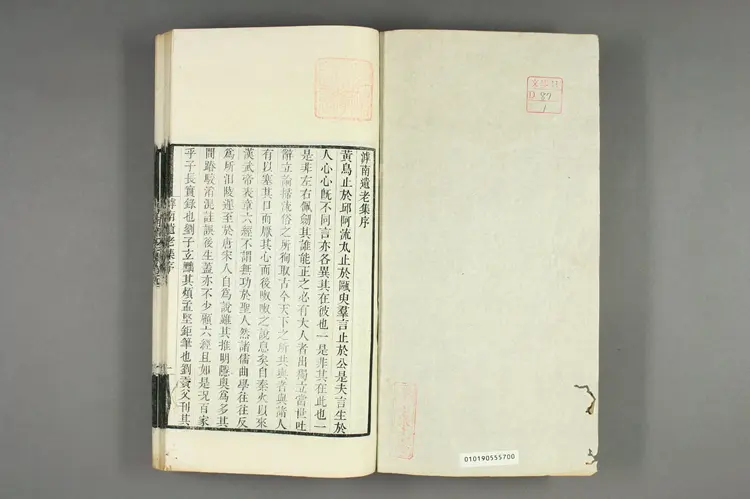 滹南遺老集序
黃鳥止於邱阿流丸止於甌臾羣言止於公是夫言生於
人心心既不同言亦各異其在彼也一是非其在此也一
是非左右佩劒其誰能正之必有大人者出獨立當世吐
辭立論掃流俗之所徇取古今天下之所共與者與諸人
有以塞其口而厭其心而後呶呶之說息矣自秦火以來
漢武帝表章六經不謂無功於聖人然諸儒曲學往往反
爲所汨陵遲至於唐宋人自爲說雖其推明隱奥爲多其
間踳駮淆混註誤後生蓋亦不少顧六經且如是況百家
乎子長實錄也劉子玄黜其煩孟堅鉅筆也劉貢父刊其
滹南遺老集序
87
1
010190555700